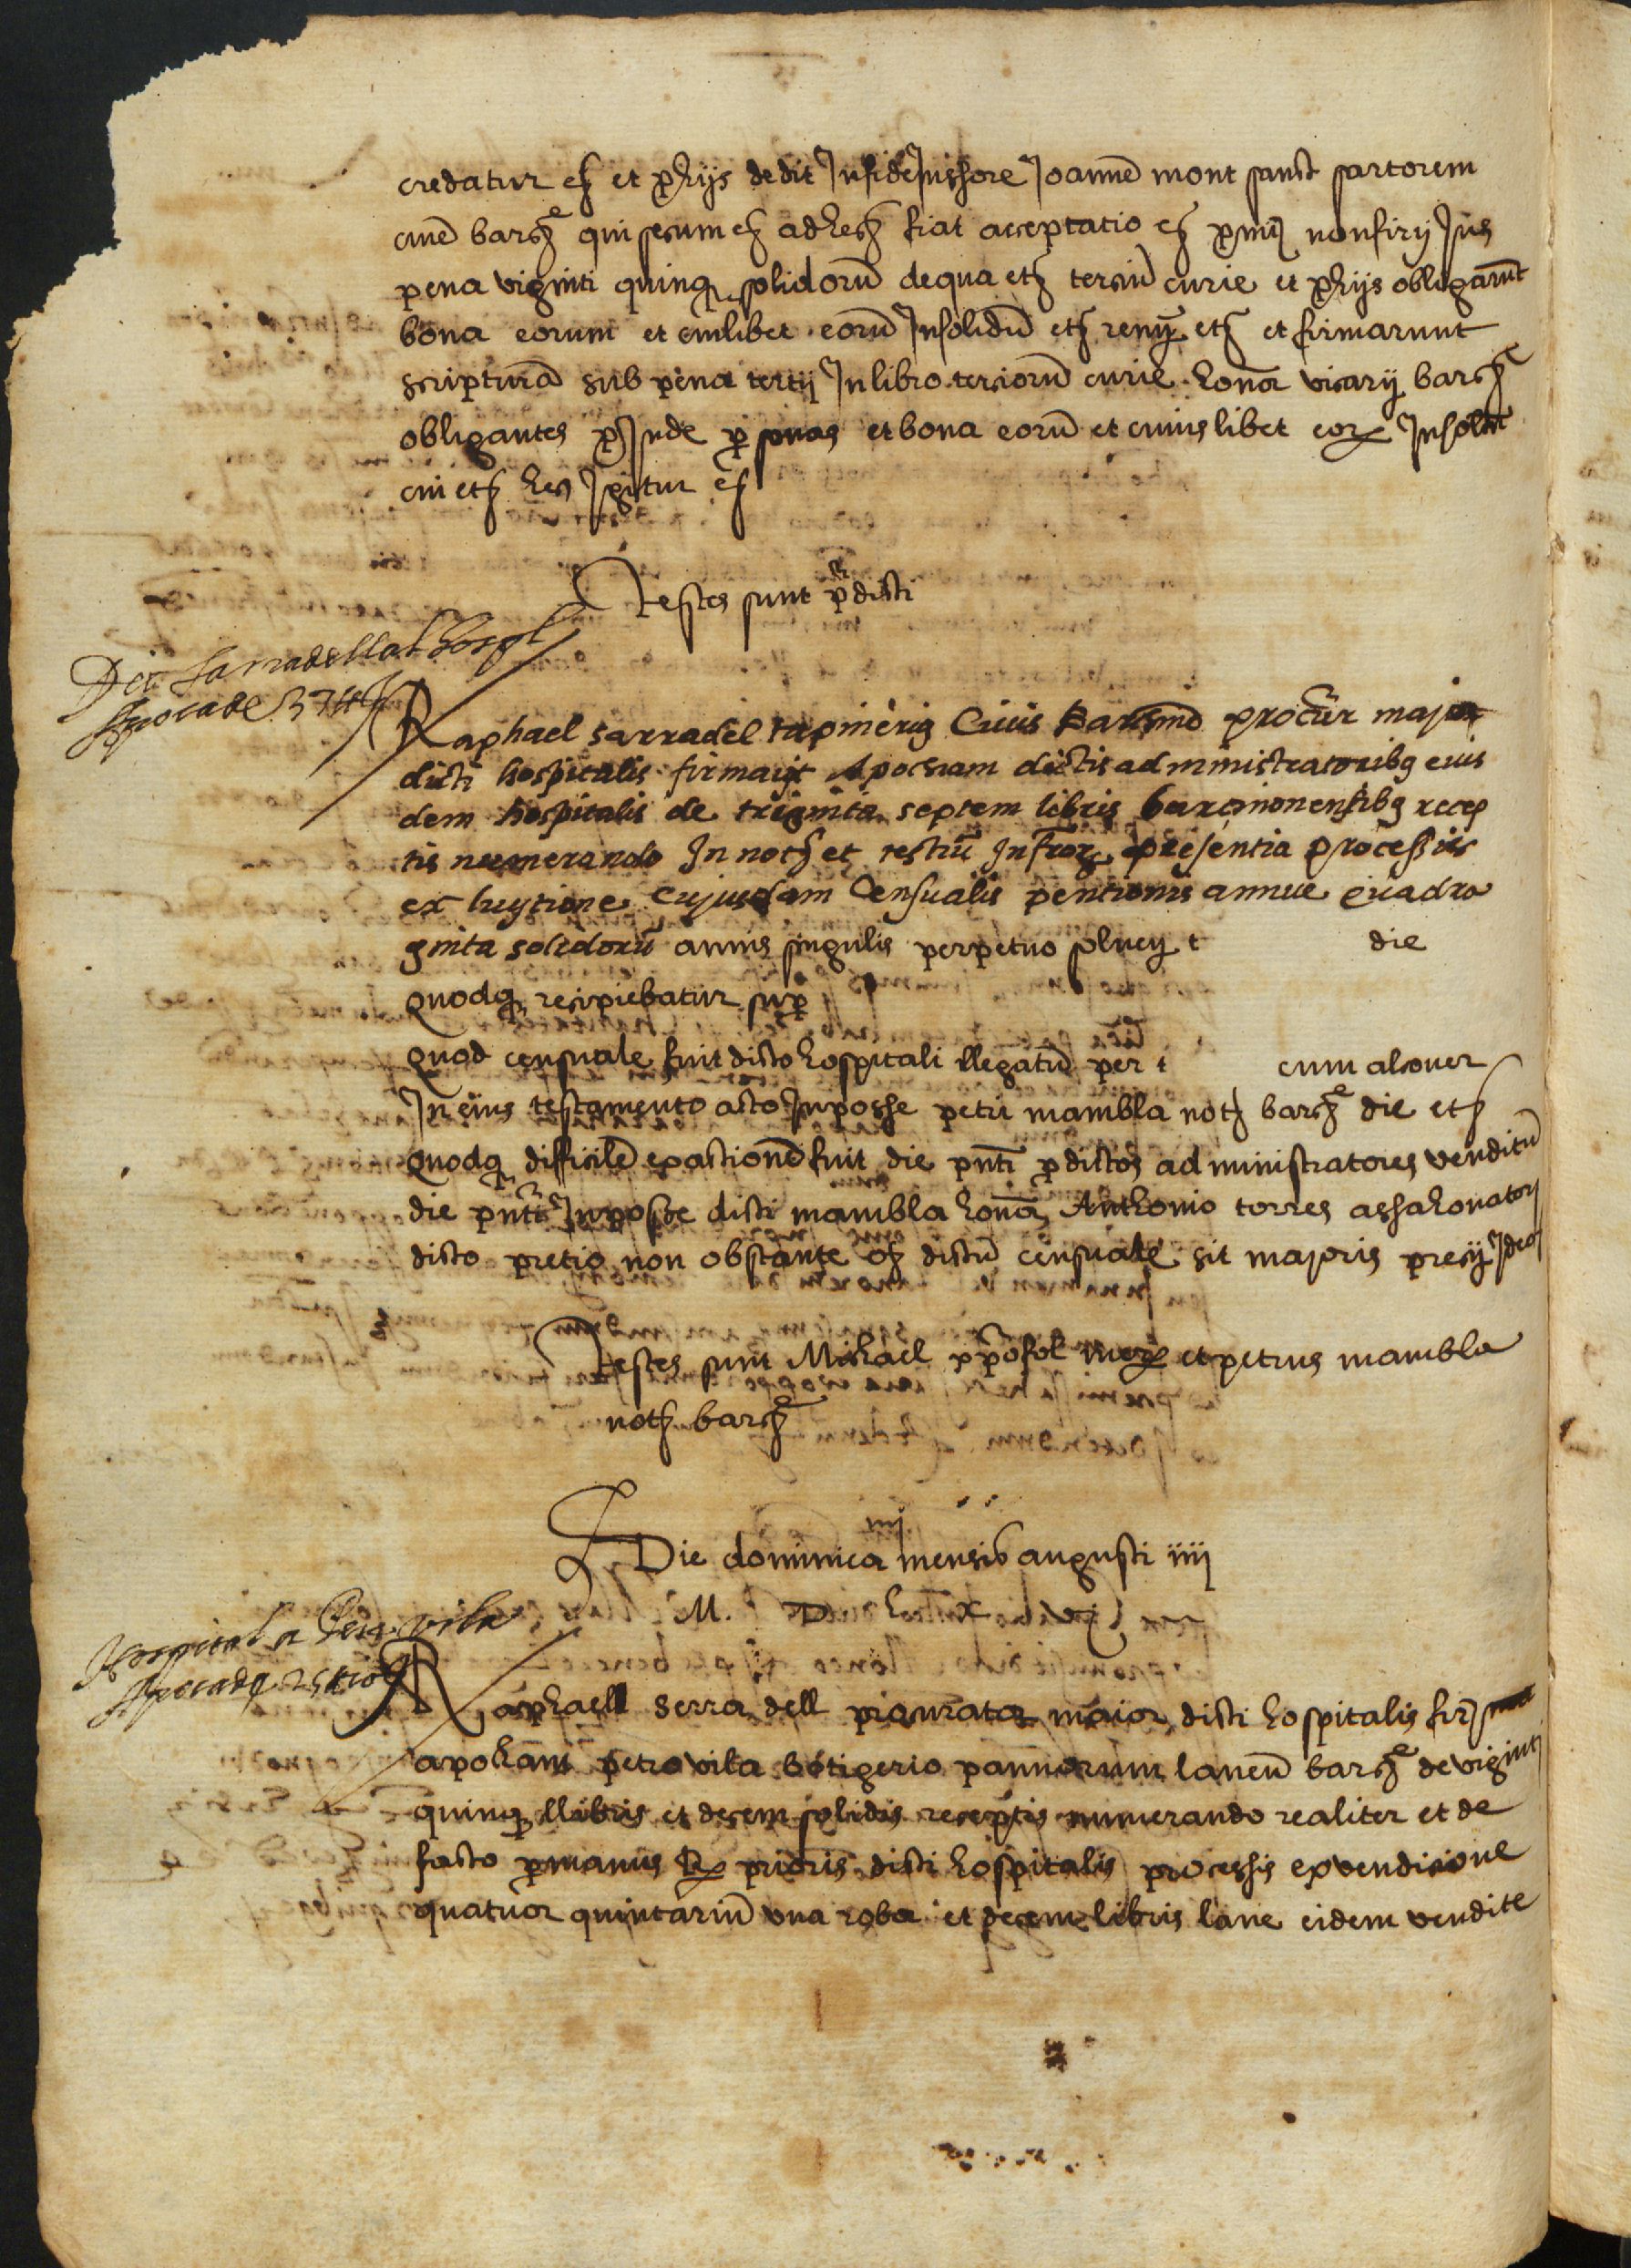 credatur etc̃ et p̱hijs dedit In fideiussore Joannẽ mont sanct sartorem
ciuẽ barc̃e qui secum etc̃ ad hec etc̃ fiat acceptatio etc̃ non firij Jus
pena viginti quinq̨ solidorũ de qua etc̃ terciũ curie et p̱hijs obligarũt
bona eorum et cuiuslibet eorũ Insolidũ etc̃ renũ etc̃ et firmarunt
scripturã sub pena tertij In libro terciorũ curie honor̃ vicarij barc̃e
obligantes p̱ Inde p̱sonas et bona eorũ et cuius libet eor̨ Insolidũ
cui etc̃ hec Igitur etc̃
Testes sunt p̱dicti
Den Sarradell al hospl
Apoca de 37 ₶
Raphael sarradel tapinerius Ciuis Barcino procũr major
dicti hospitalis firmauit Apocham dictis administratoribꝯ eius
dem hospitalis de triginta septem libris barcinonensibꝯ recep
tis numerando In notc̃ et testiũ Infror̨ presentia processiis
ex luytione cujusdam Censualis pentionis annue quadra
ginta solidorũ annis singulis perpetuo soluen t die
Quodq̨ recipiebatur sup̱
Quod censuale fuit dicto hospitali llegatũ per t cum alcouer
In eius testamento acto In posse petri mambla notc̃ barc̃e die etc̃
quodq̨ difficilẽ exactionẽ fuit die pñti p̱dictos administratores venditũ
die pñti In posse dicti mambla honor̃ Anthonio torres assahonatori
dicto pretio non obstante q̃ dictũ censuale sit majoris precij Ideo
Testes sunt Michael et petrus mambla
notc̃ barc̃e
Die dominica mensis augusti iiij
M. D L x vj
Hospital a Pere vila
Apoca de 25 ₶ 10 s
Raphaell serra dell procurator maior dicti hospitalis firmauit
apocham petro vila botigerio pannorum laneũ barc̃e de viginti
quinq̨ llibris et decem solidis receptis numerando realiter et de
facto p̱ manus Rx̨ prioris dicti hospitalis processis ex vendicione
quatuor quintariũ vna roba et decem libris lane eidem vendite